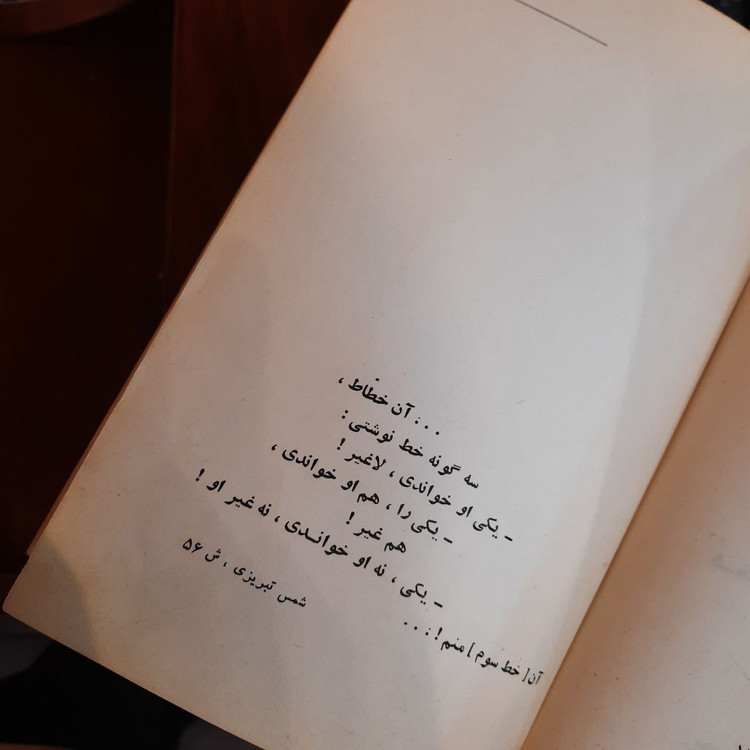 . . : آن خطّاط ،
سه گونه خط نوشتی :
- یکی او خواندی ، لاغیر !
- یکی را ، هم او خواندی ،
هم غیر !
- یکی ، نه او خوانـدی ، نه غیر او !
آن [ خط سوم ] منم ! : . .
شمس تبریزی ، ش ۵۶